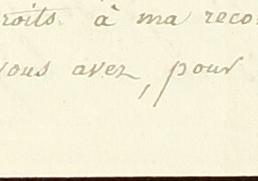 roits à ma reco
vous avez, pour